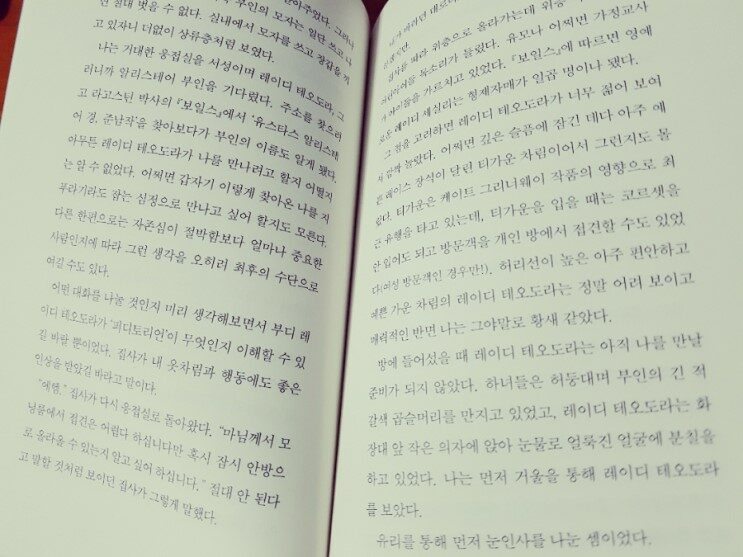 부인의 모자는 일단 쓰고 나
면 절대 벗을 수 없다. 실내에서 모자를 쓰고 장갑을 끼
고 있자니 더없이 상류층처럼 보였다.
나는 거대한 응접실을 서성이며 레이디 테오도라, 그
러니까 알리스테어 부인을 기다렸다. 주소를 찾으러
고 라고스틴 박사의 『보일스』에서 '유스타스 알리스테
어 경, 준남작'을 찾아보다가 부인의 이름도 알게 됐다.
아무튼 레이디 테오도라가 나를 만나려고 할지 어떨지
는 알 수 없었다. 어쩌면 갑자기 이렇게 찾아온 나를 지
푸라기라도 잡는 심정으로 만나고 싶어 할지도 모른다.
다른 한편으로는 자존심이 절박함보다 얼마나 중요한
사람인지에 따라 그런 생각을 오히려 최후의 수단으로
여길 수도 있다.
어떤 대화를 나눌 것인지 미리 생각해보면서 부디 레
이디 테오도라가 '퍼디토리언'이 무엇인지 이해할 수 있
길 바랄 뿐이었다. 집사가 내 옷차림과 행동에도 좋은
인상을 받았길 바라고 말이다.
"에헴." 집사가 다시 응접실로 돌아왔다. "마님께서 모
닝룸에서 접견은 어렵다 하십니다만 혹시 잠시 안방으
로 올라올 수 있는지 알고 싶어 하십니다." 절대 안 된다
고 말할 것처럼 보이던 집사가 그렇게 말했다.
집사를 따라 위층으로 올라가는데 위층
어린아이들 목소리가 들렸다. 유모나 어쩌면 가정교사
가 아이들을 가르치고 있었다. 『보일스』에 따르면 영애
로운 레이디 세실리는 형제자매가 일곱 명이나 됐다.
그 점을 고려하면 레이디 테오도라가 너무 젊어 보여
서 깜짝 놀랐다. 어쩌면 깊은 슬픔에 잠긴 데다 아주 예
쁜 레이스 장식이 달린 티가운 차림이어서 그런지도 몰
랐다. 티가운은 케이트 그리너웨이 작품의 영향으로 최
근 유행을 타고 있는데, 티가운을 입을 때는 코르셋을
안 입어도 되고 방문객을 개인 방에서 접견할 수도 있었
다(여성 방문객인 경우만!). 허리선이 높은 아주 편안하고
예쁜 가운 차림의 레이디 테오도라는 정말 어려 보이고
매력적인 반면 나는 그야말로 황새 같았다.
방에 들어섰을 때 레이디 테오도라는 아직 나를 만날
준비가 되지 않았다. 하녀들은 허둥대며 부인의 긴 적
갈색 곱슬머리를 만지고 있었고, 레이디 테오도라는 화
장대 앞 작은 의자에 앉아 눈물로 얼룩진 얼굴에 분칠을
하고 있었다. 나는 먼저 거울을 통해 레이디 테오도라
를 보았다.
유리를 통해 먼저 눈인사를 나눈 셈이었다.